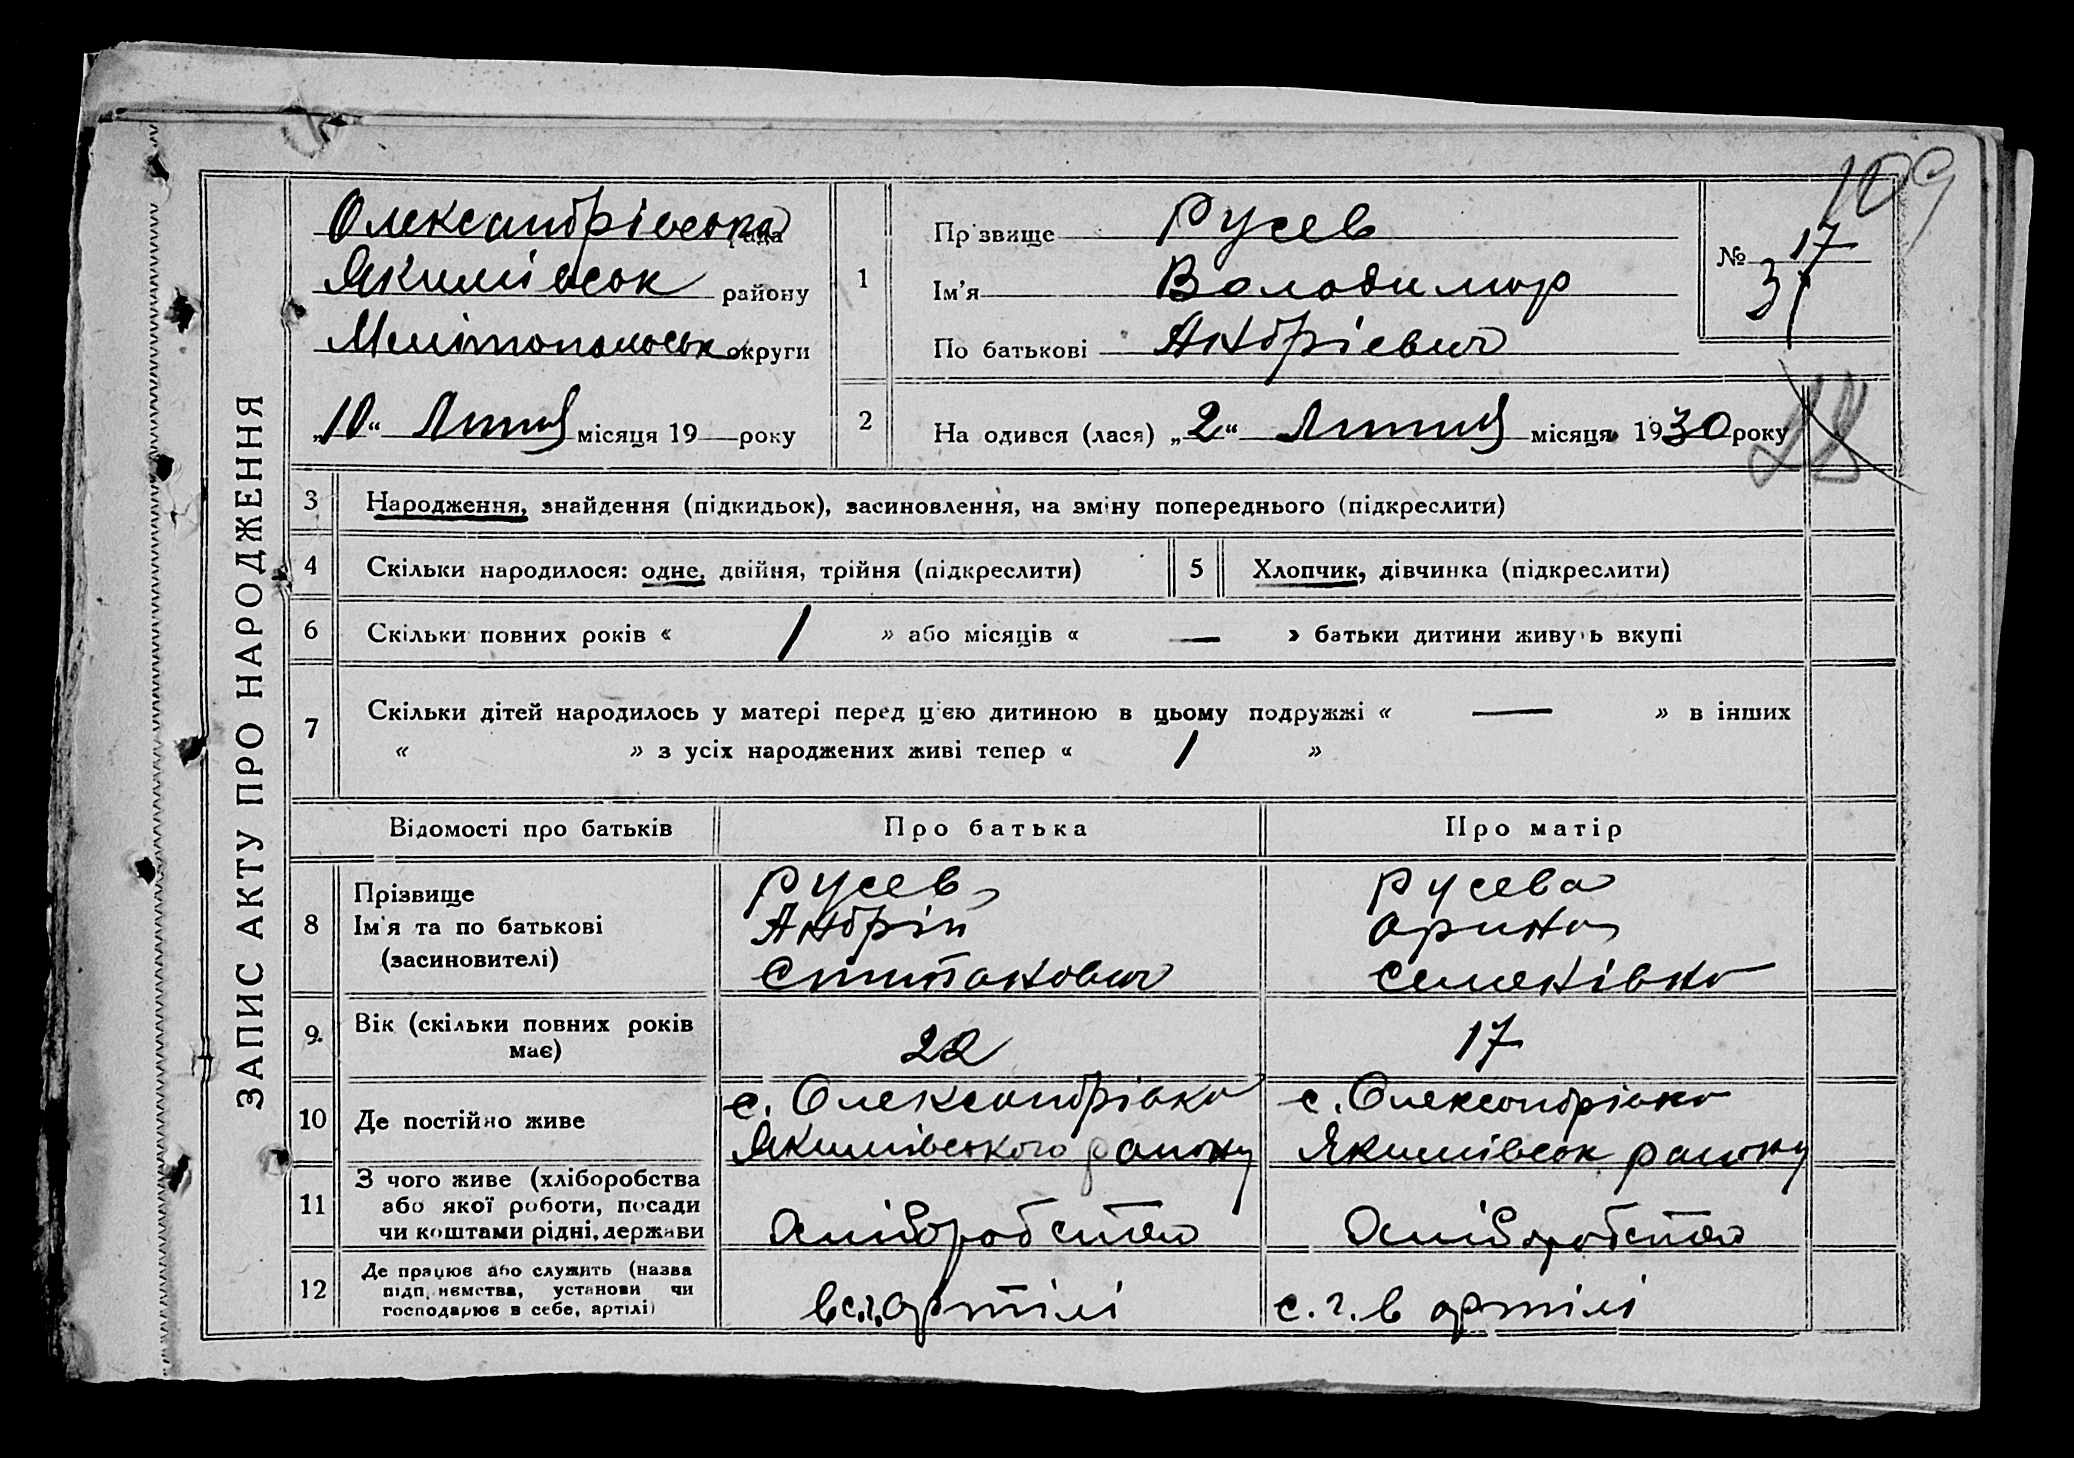 109
ЗАПИС АКТУ ПРО НАРОДЖЕННЯ
Олександрівська рада
Якимівськ району
Мелітопольськ округи
„10“ Липня місяця 19 року
1
Прізвище Русев
Ім’я Володимир
По батькові Андрієвич
№ 17
31
2
На одився (лася) „2“ Липня місяця 1930 року
28
3 Народження, знайдення (підкидьок), засиновлення, на зміну попереднього (підкреслити)
4 Скільки народилося: одне, двійня, трійня (підкреслити)
5 Хлопчик, дівчинка (підкреслити)
6 Скільки повних років « 1 » або місяців « — » батьки дитини живуть вкупі
7 Скільки дітей народилось у матері перед цією дитиною в цьому подружжі « — » в інших
« » з усіх народжених живі тепер « 1 »
Відомості про батьків Про батька Про матір
8
Прізвище
Ім’я та по батькові
(засиновителі)
Русев
Андрій
Степанович
Русева
Орина
Семенівна
9. Вік (скільки повних років
має)
22
17
10 Де постійно живе
с. Олександрівка
Якимівського району
с. Олександрівка
Якимівськ району
11
З чого живе (хліборобства
або якої роботи, посади
чи коштами рідні, держави
Хліборобство
Хліборобство
12
Де працює або служить (назва
підприємства, установи чи
господарює в себе, артілі)
в с.г. артілі
с. г. в артілі